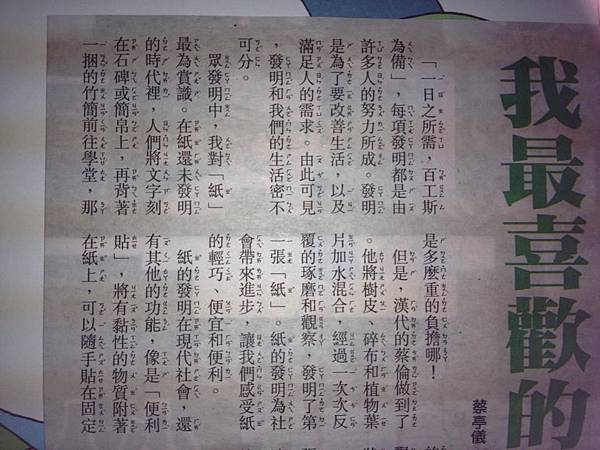 我最喜歡的
蔡亭儀
「一日之所需,百工斯
為備」,每項發明都是由
許多人的努力所成。發明
是為了要改善生活,以及
滿足人的需求。由此可見
,發明和我們的生活密不
可分。
眾發明中,我對「紙」
最為賞識。在紙還未發明
的時代裡,人們將文字刻
在石碑或簡帛上,再背著
一捆的竹簡前往學堂,那
是多麼重的負擔哪!
但是,漢代的蔡倫做到了
。他將樹皮、碎布和植物葉
片加水混合,經過一次次反
覆的琢磨和觀察,發明了第
一張「紙」。紙的發明為社
會帶來進步,讓我們感受紙
的輕巧、便宜和便利。
紙的發明在現代社會,還
有其他的功能,像是「便利
貼」,將有黏性的物質附著
在紙上,可以隨手貼在固定